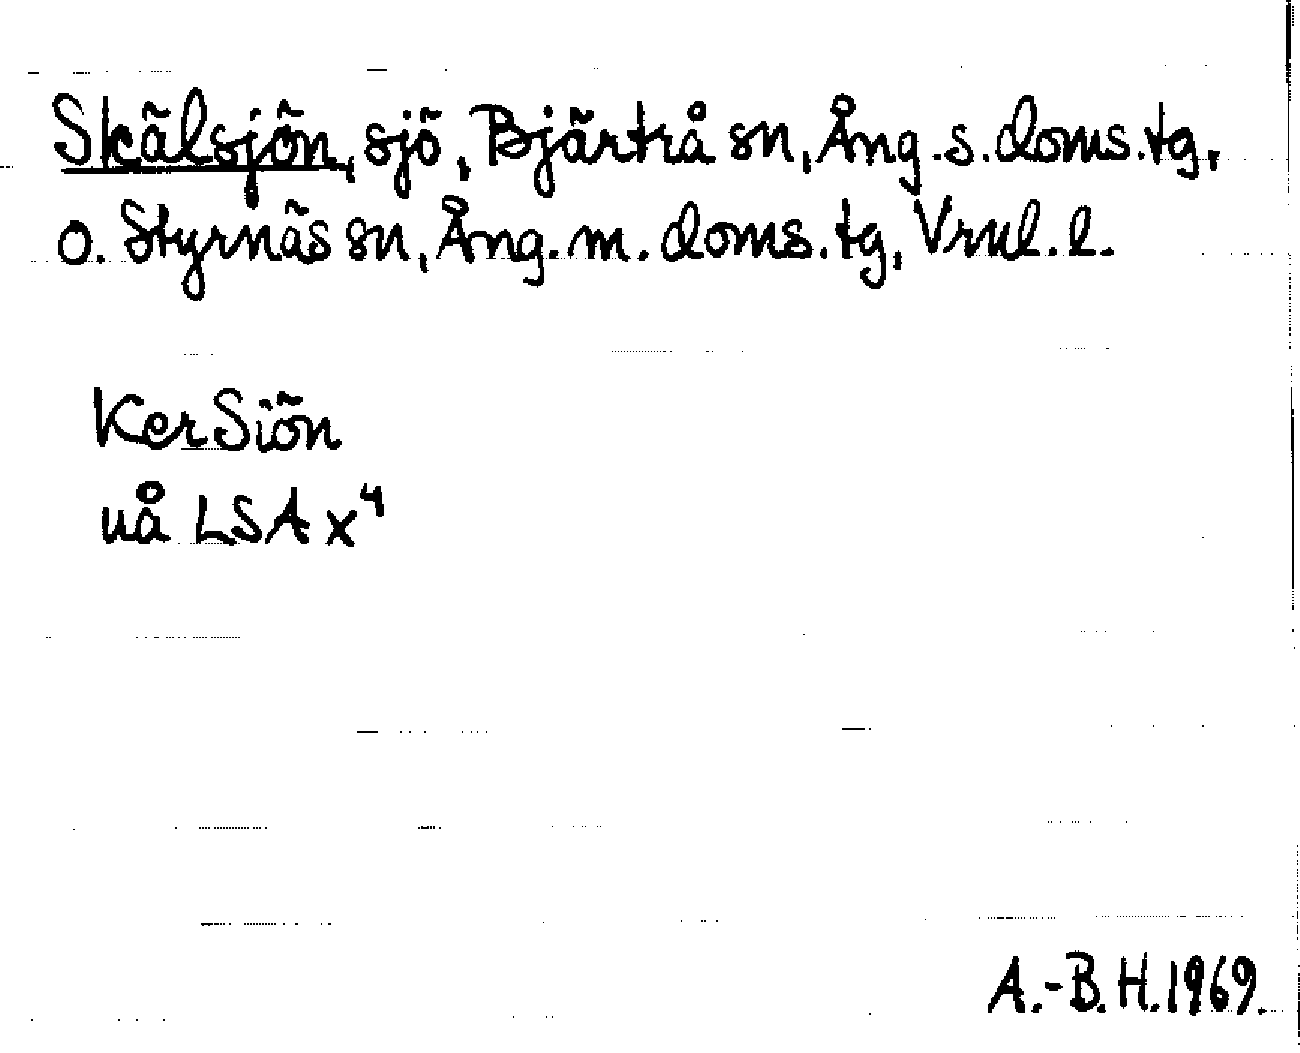 Skälsjön, sjö, Bjärtrå sn, Ång.s.doms.tg,
o. Styrnäs sn, Ång.m.doms.tg, Vrnl.l.
KerSiön
uå LSA x⁴
A.-B.H.1969.